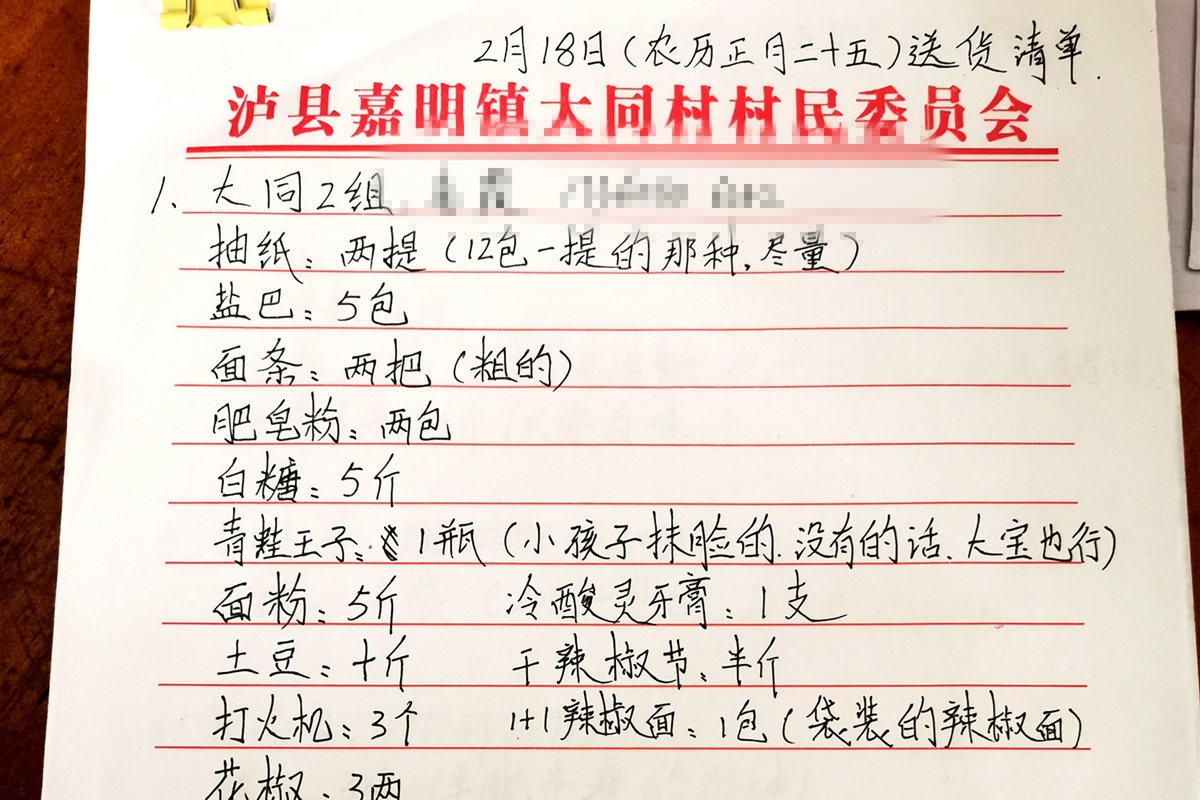 2月18日(农历正月二十五)送货清单.
泸县嘉明镇大同村村民委员会
1、大同2组
抽纸:两提(12包一提的那种,尽量)
盐巴:5包
面条:两把(粗的)
肥皂粉:两包
白糖:5斤
青蛙王子:1瓶(小孩子抹脸的.没有的话、大宝也行)
面粉:5斤 冷酸灵牙膏:1支
土豆:十斤 干辣椒节:半斤
打火机:3个 1+1辣椒面:1包(袋装的辣椒面)
花椒:3两